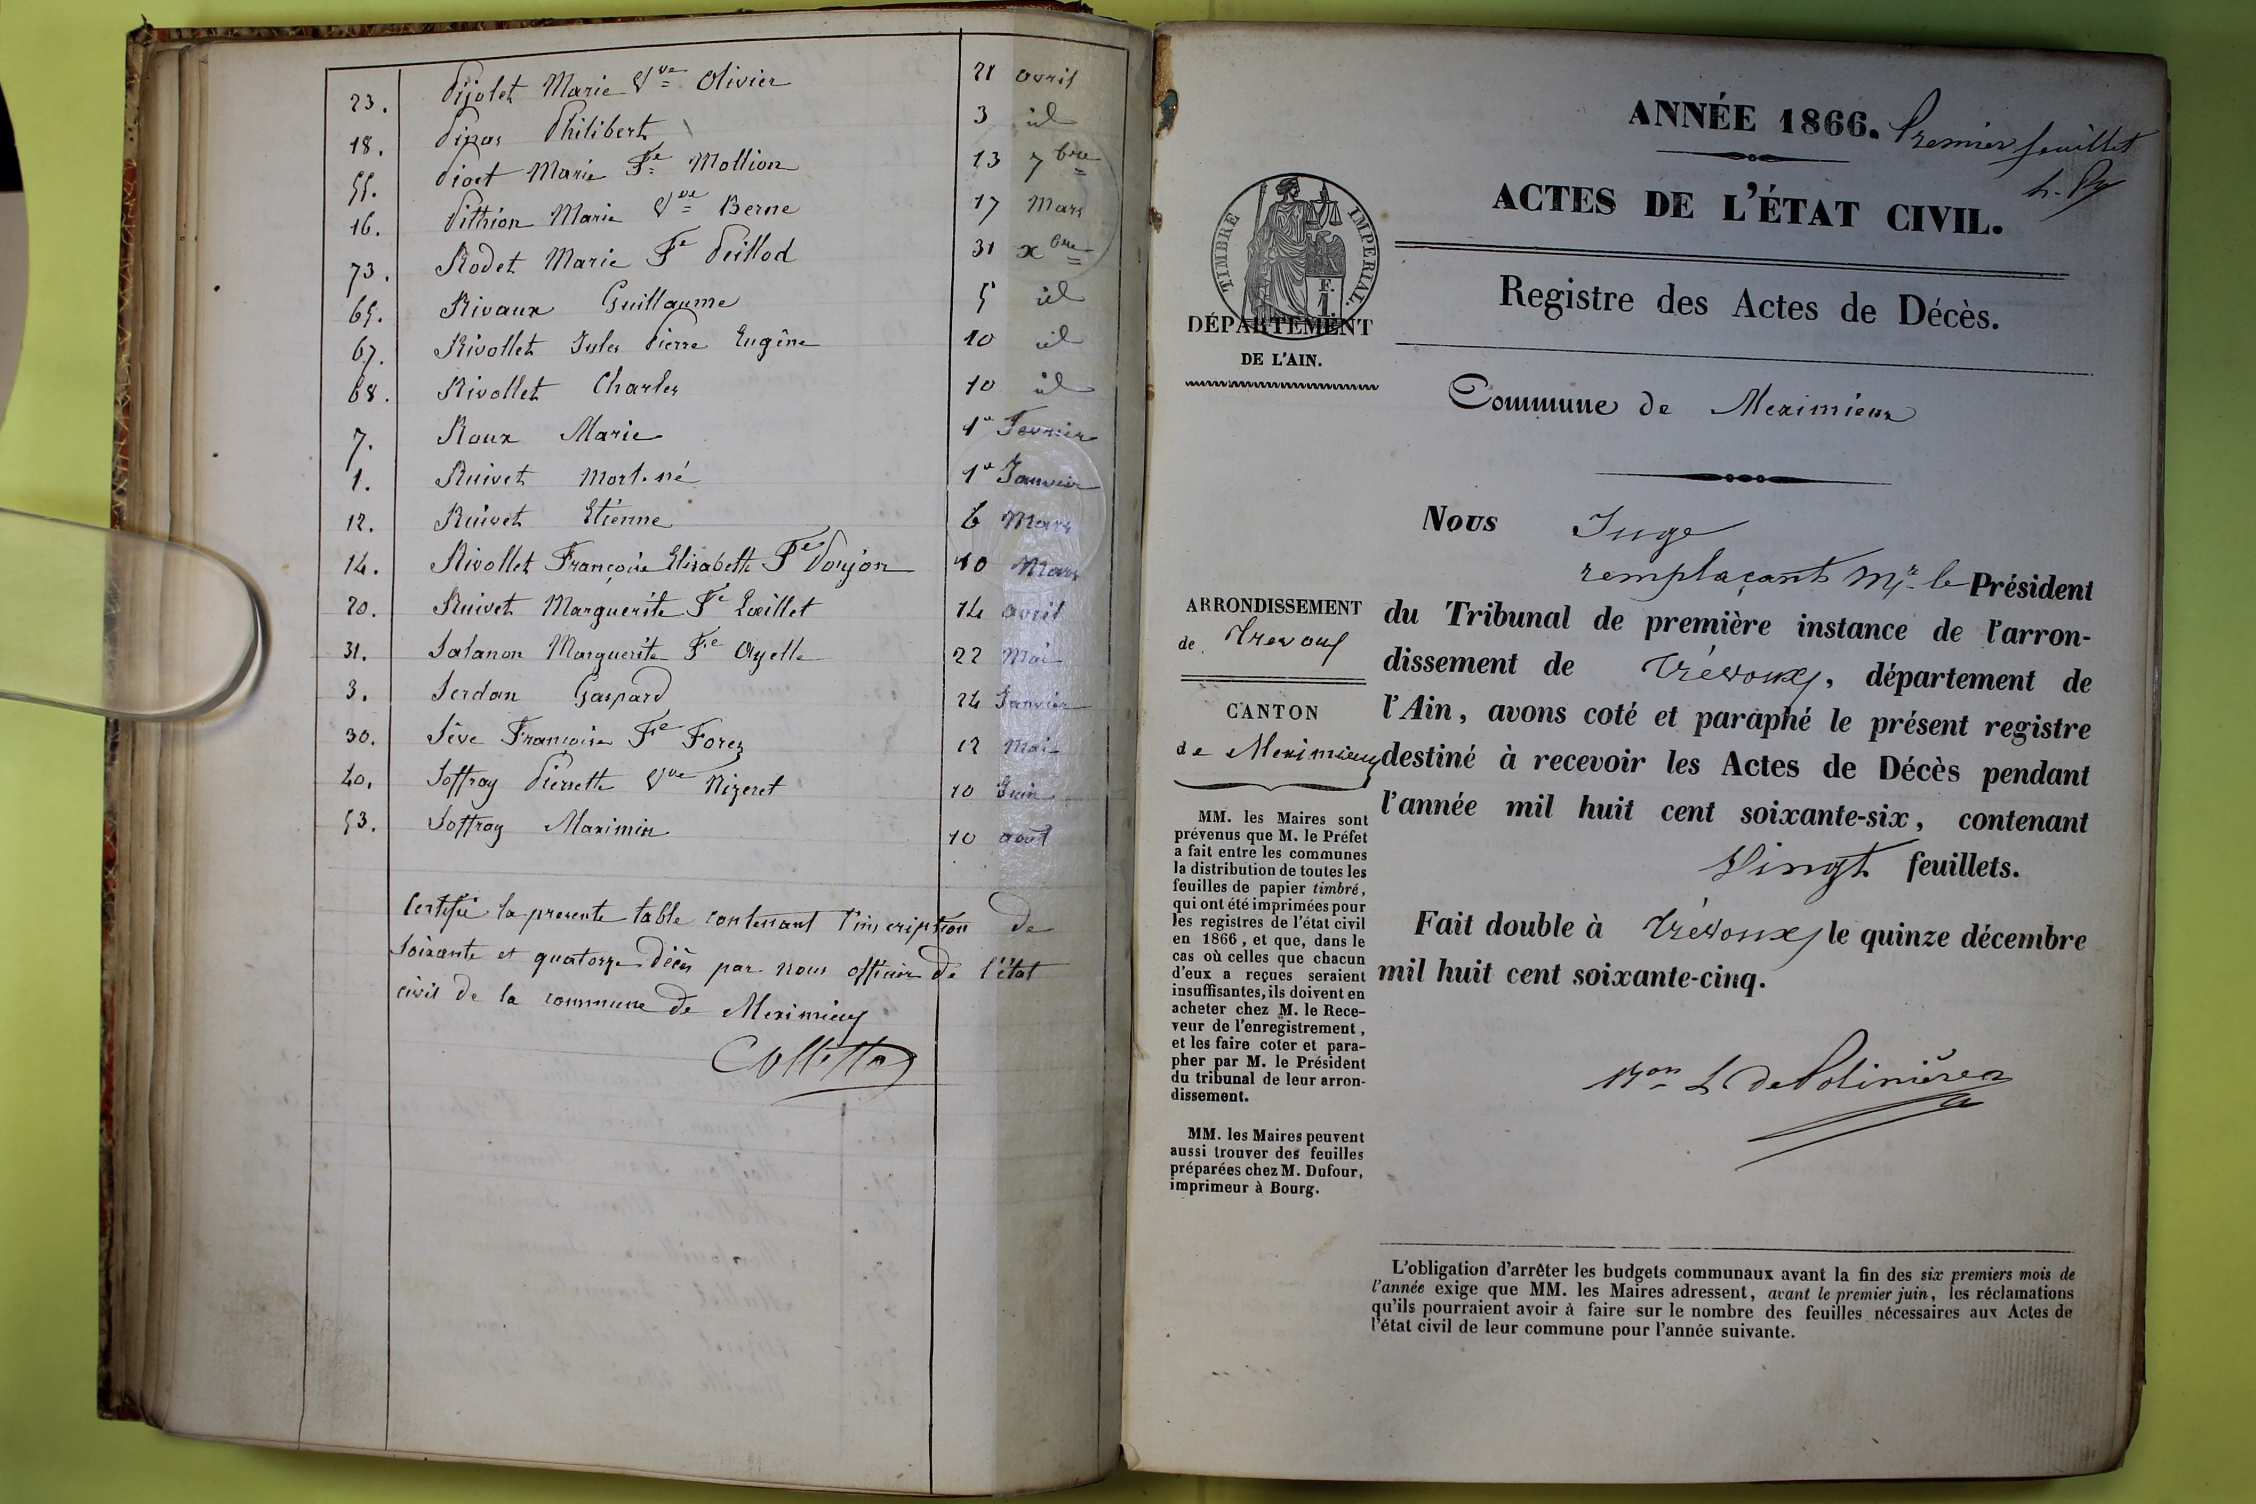 23. Pijolet Marie Vve Olivier 21 avril
18. Pipas Philibert 3 id
55. Piost Marie Fe Mollion 13 7bre
16. Pithion Marie Vve Berne 17 Mars
73. Rodet Marie Fe Peillod 31 xbre
65. Rivaux Guillaume 5 id
67. Rivollet Jules Pierre Eugène 10 id
68. Rivollet Charles 10 id
7. Roux Marie 1er Fevrier
1. Ruivet Mort-né 1er Janvier
12. Ruivet Etienne 6 Mars
14. Rivollet Françoise Elisabeth Fe Poujon 10 Mars
20. Ruivet Marguerite Fe Lœillet 14 avril
31. Salanon Marguerite Fe Ayelle 22 Mai
3. Serdan Gaspard 24 Janvier
30. Sève Françoise Fe Forez 12 Mai
40. Soffray Pierrette Vve Nizeret 10 Juin
53. Soffray Maximin 10 août
Certifié la presente table contenant l'inscription de
soixante et quatorze décès par nous officier de l'état
civil de la commune de Meximieux
ANNÉE 1866.
Premier feuillet
ACTES DE L'ÉTAT CIVIL.
TIMBRE IMPERIAL.
F. 1.
Registre des Actes de Décès.
DÉPARTEMENT
DE L'AIN.
Commune de Meximieux
Nous Juge
remplaçant Mr. le Président
du Tribunal de première instance de l'arron-
dissement de Trévoux, département de
l'Ain, avons coté et paraphé le présent registre
destiné à recevoir les Actes de Décès pendant
l'année mil huit cent soixante-six, contenant
Vingt feuillets.
Fait double à Trévoux, le quinze décembre
mil huit cent soixante-cinq.
Bon L de Polinière
ARRONDISSEMENT
de Trevoux
CANTON
de Meximieux
MM. les Maires sont
prévenus que M. le Préfet
a fait entre les communes
la distribution de toutes les
feuilles de papier timbré,
qui ont été imprimées pour
les registres de l'état civil
en 1866, et que, dans le
cas où celles que chacun
d'eux a reçues seraient
insuffisantes, ils doivent en
acheter chez M. le Rece-
veur de l'enregistrement,
et les faire coter et para-
pher par M. le Président
du tribunal de leur arron-
dissement.
MM. les Maires peuvent
aussi trouver des feuilles
préparées chez M. Dufour,
imprimeur à Bourg.
L'obligation d'arrêter les budgets communaux avant la fin des six premiers mois de
l'année exige que MM. les Maires adressent, avant le premier juin, les réclamations
qu'ils pourraient avoir à faire sur le nombre des feuilles nécessaires aux Actes de
l'état civil de leur commune pour l'année suivante.